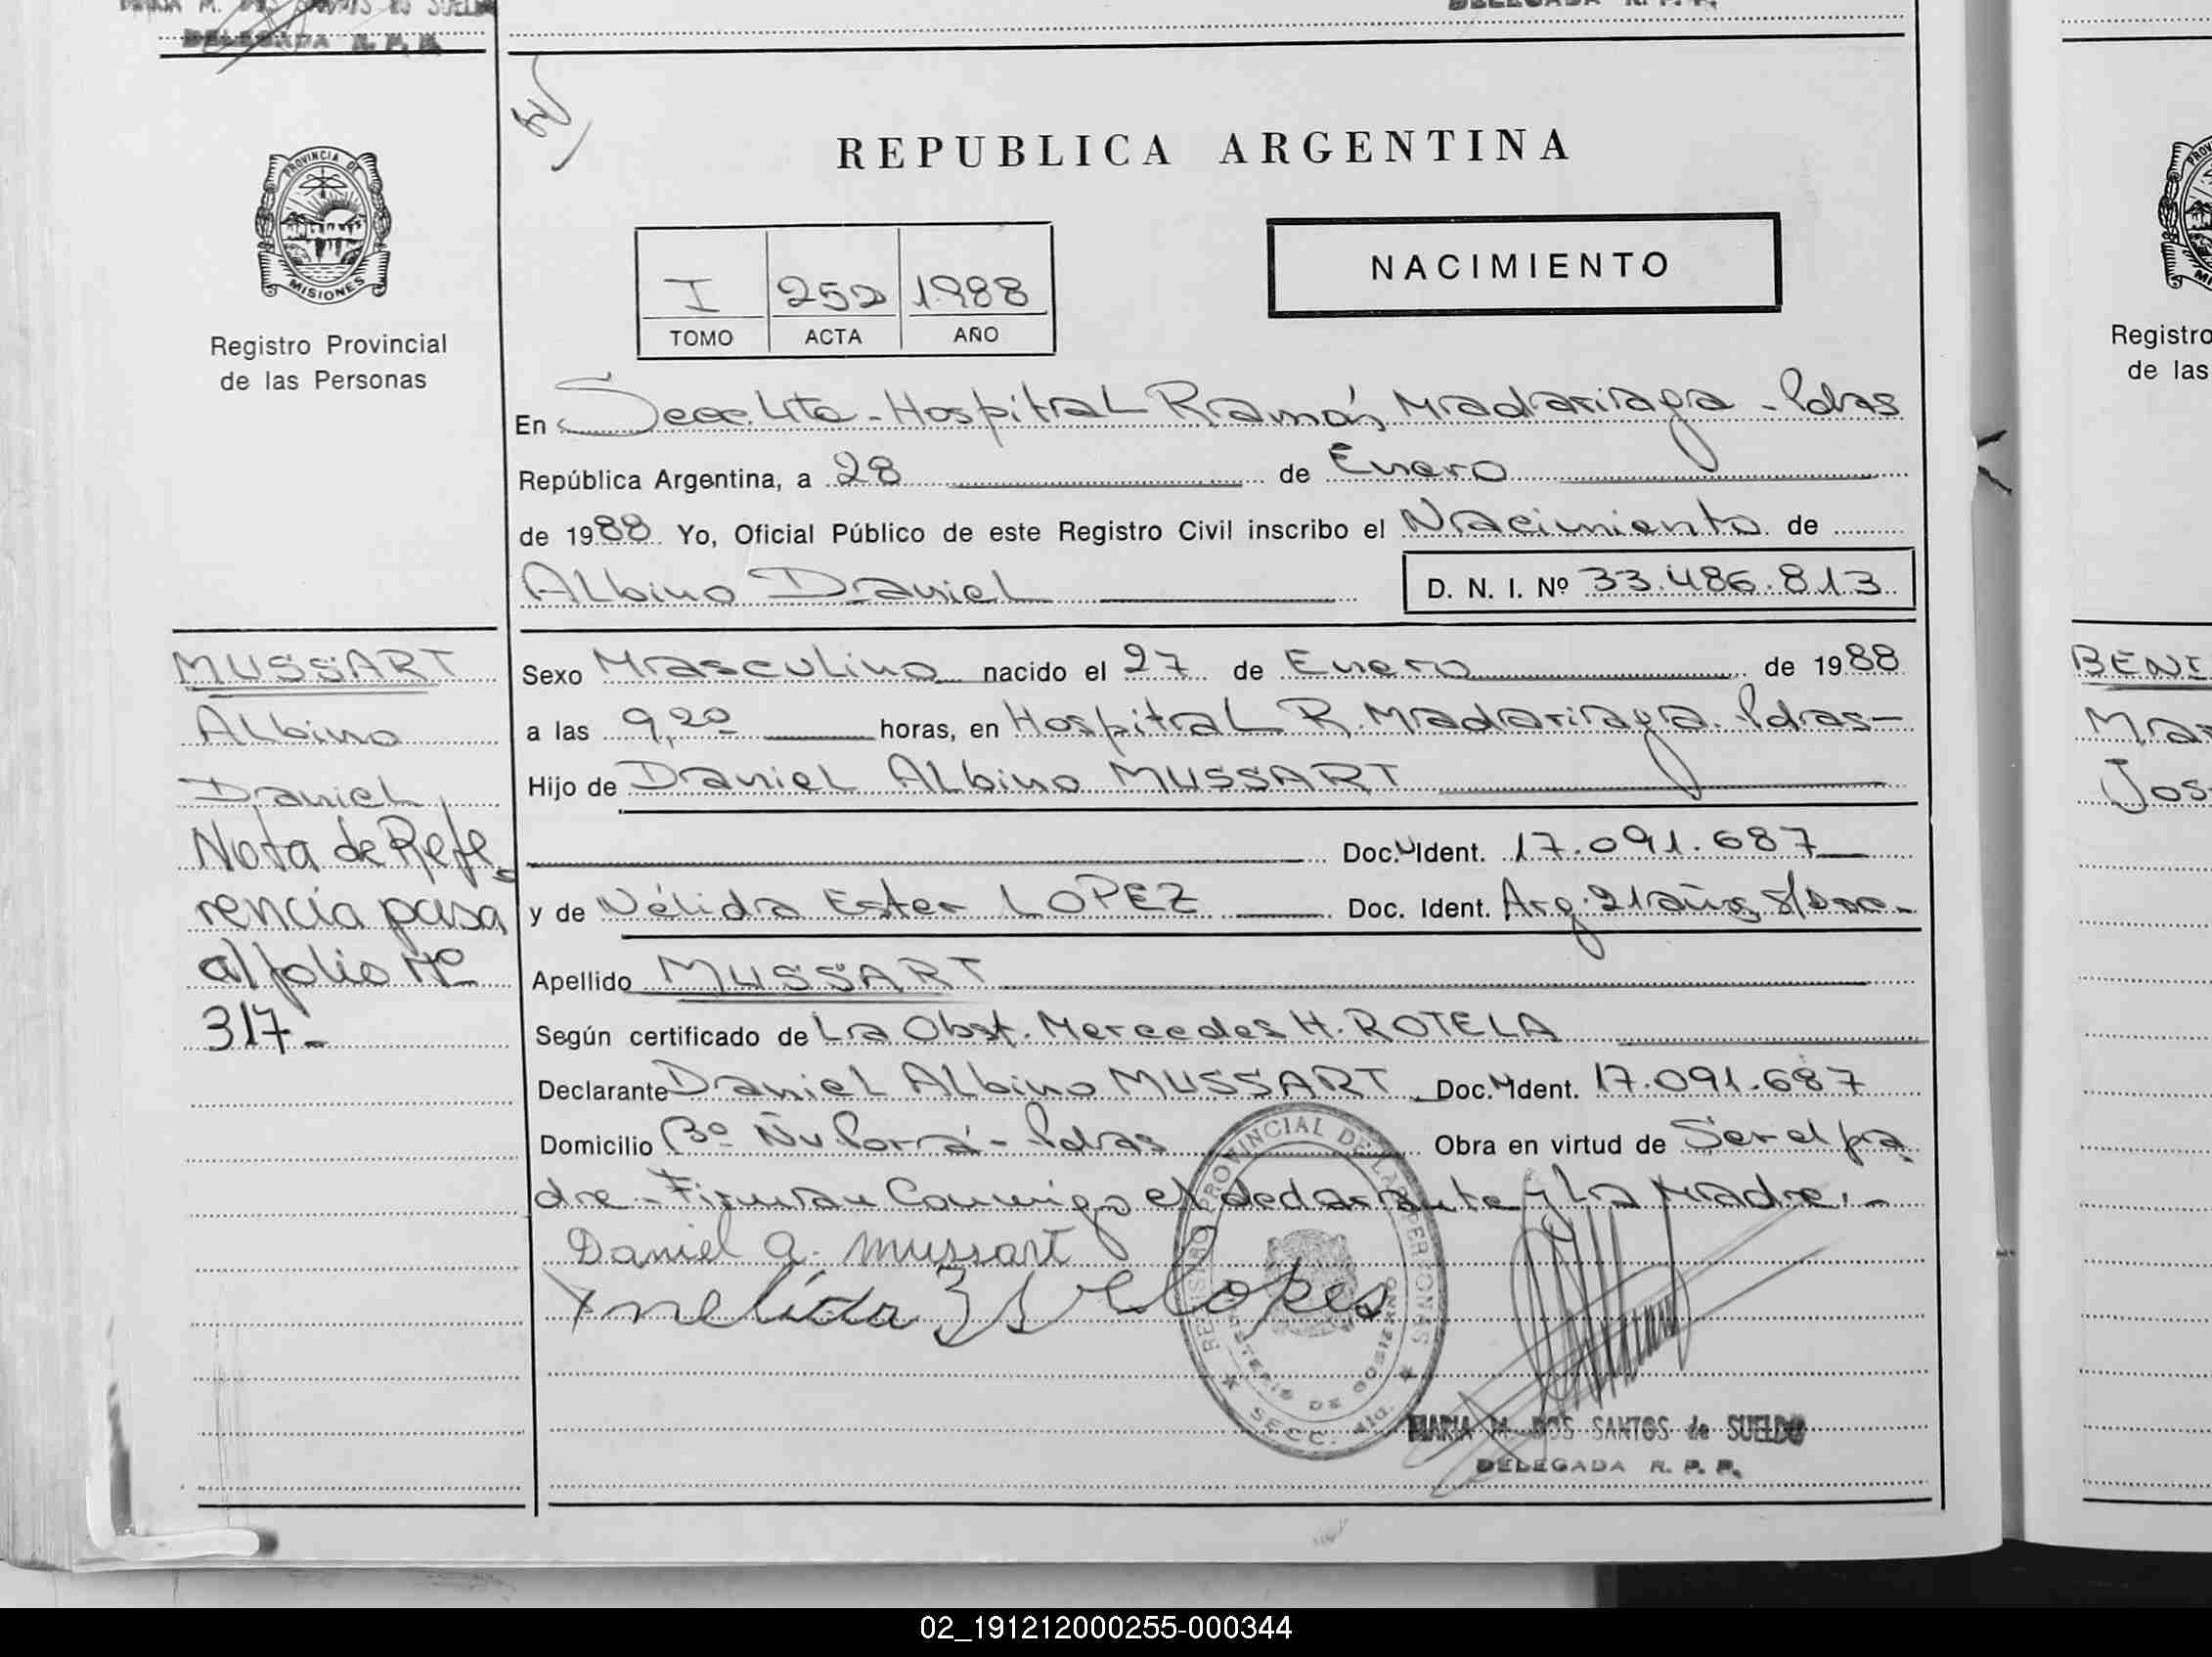 DELEGADA R. P. P.
DELEGADA R. P. P.
REPUBLICA ARGENTINA
PROVINCIA DE
MISIONES
Registro Provincial
de las Personas
I 252 1988
TOMO ACTA AÑO
NACIMIENTO
En Secc. 4ta - Hospital Ramón Madariaga - Pdas
República Argentina, a 28 de Enero
de 1988 Yo, Oficial Público de este Registro Civil inscribo el Nacimiento de
Albino Daniel D. N. I. Nº 33.486.813
MUSSART
Albino
Daniel
Nota de Refe
rencia pasa
al folio Nº
317-
Sexo Masculino nacido el 27 de Enero de 1988
a las 9,20 horas, en Hospital R. Madariaga. Pdas-
Hijo de Daniel Albino MUSSART
Doc. Ident. 17.091.687
y de Nélida Ester LOPEZ Doc. Ident. Arg. 21 años s/Doc.-
Apellido MUSSART
Según certificado de La Obst. Mercedes H. ROTELA
Declarante Daniel Albino MUSSART Doc. Ident. 17.091.687
Domicilio Bº Ñu Porá - Pdas Obra en virtud de Ser el pa
dre - Firman Conmigo el declarante y La Madre.-
Daniel a. mussart
nelida
REGISTRO PROVINCIAL DE LAS PERSONAS
DE GOBIERNO
SECC. 4ta.
MARIA M. DOS SANTOS de SUELDO
DELEGADA R. P. P.
Registro
de las
BENI
Mar
Jos
02_191212000255-000344